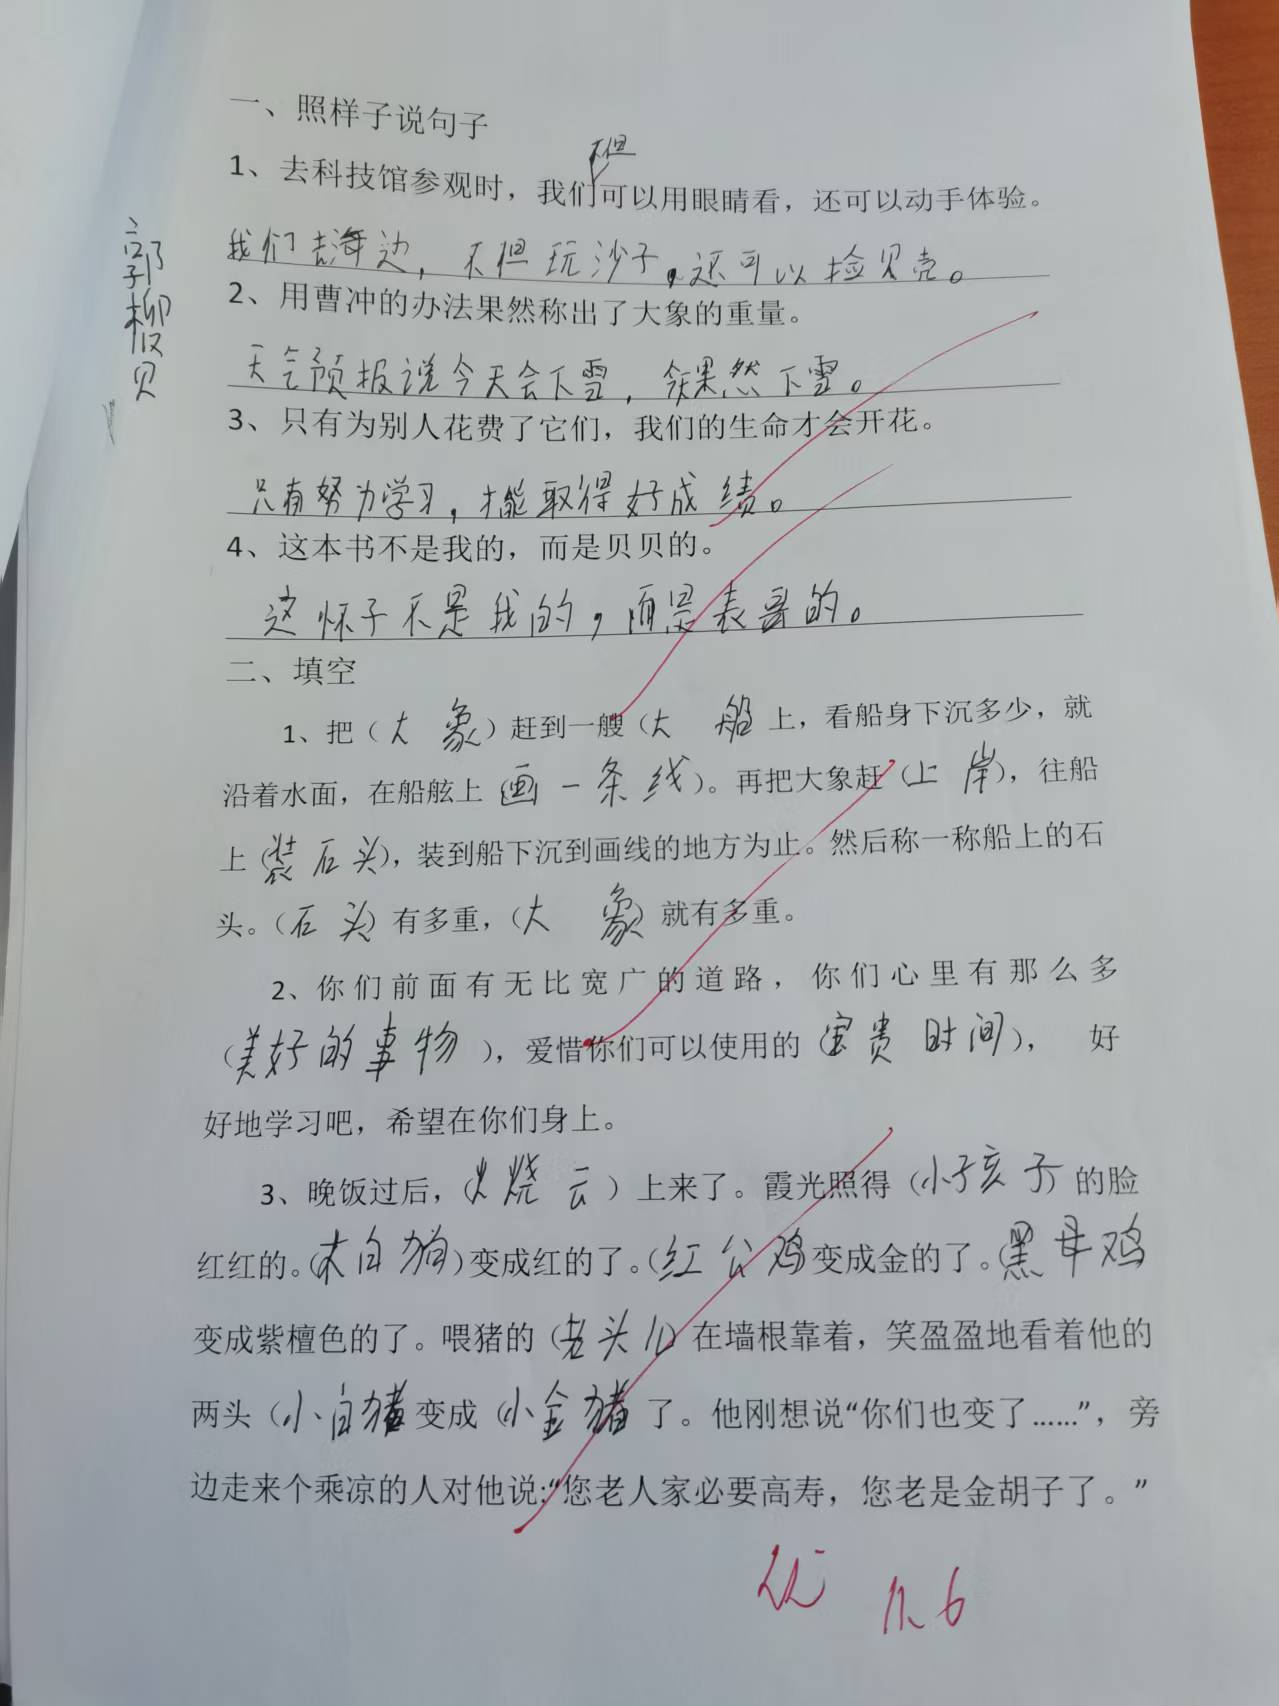 一、照样子说句子
不但
1、去科技馆参观时，我们可以用眼睛看，还可以动手体验。
我们去海边，不但玩沙子，还可以捡贝壳。
2、用曹冲的办法果然称出了大象的重量。
天气预报说今天会下雪，果然下雪。
3、只有为别人花费了它们，我们的生命才会开花。
只有努力学习，才能取得好成绩。
4、这本书不是我的，而是贝贝的。
这怀子不是我的，而是表哥的。
二、填空
1、把（大象）赶到一艘（大船上，看船身下沉多少，就
沿着水面，在船舷上（画一条线）。再把大象赶（上岸），往船
上（装石头），装到船下沉到画线的地方为止。然后称一称船上的石
头。（石头）有多重，（大象）就有多重。
2、你们前面有无比宽广的道路，你们心里有那么多
（美好的事物），爱惜你们可以使用的（宝贵时间），好
好地学习吧，希望在你们身上。
3、晚饭过后，（火烧云）上来了。霞光照得（小孩子）的脸
红红的。（大白狗）变成红的了。（红公鸡变成金的了。（黑母鸡
变成紫檀色的了。喂猪的（老头儿）在墙根靠着，笑盈盈地看着他的
两头（小白猪变成（小金猪了。他刚想说“你们也变了……”，旁
边走来个乘凉的人对他说：“您老人家必要高寿，您老是金胡子了。”
优 11.6
郭柳贝